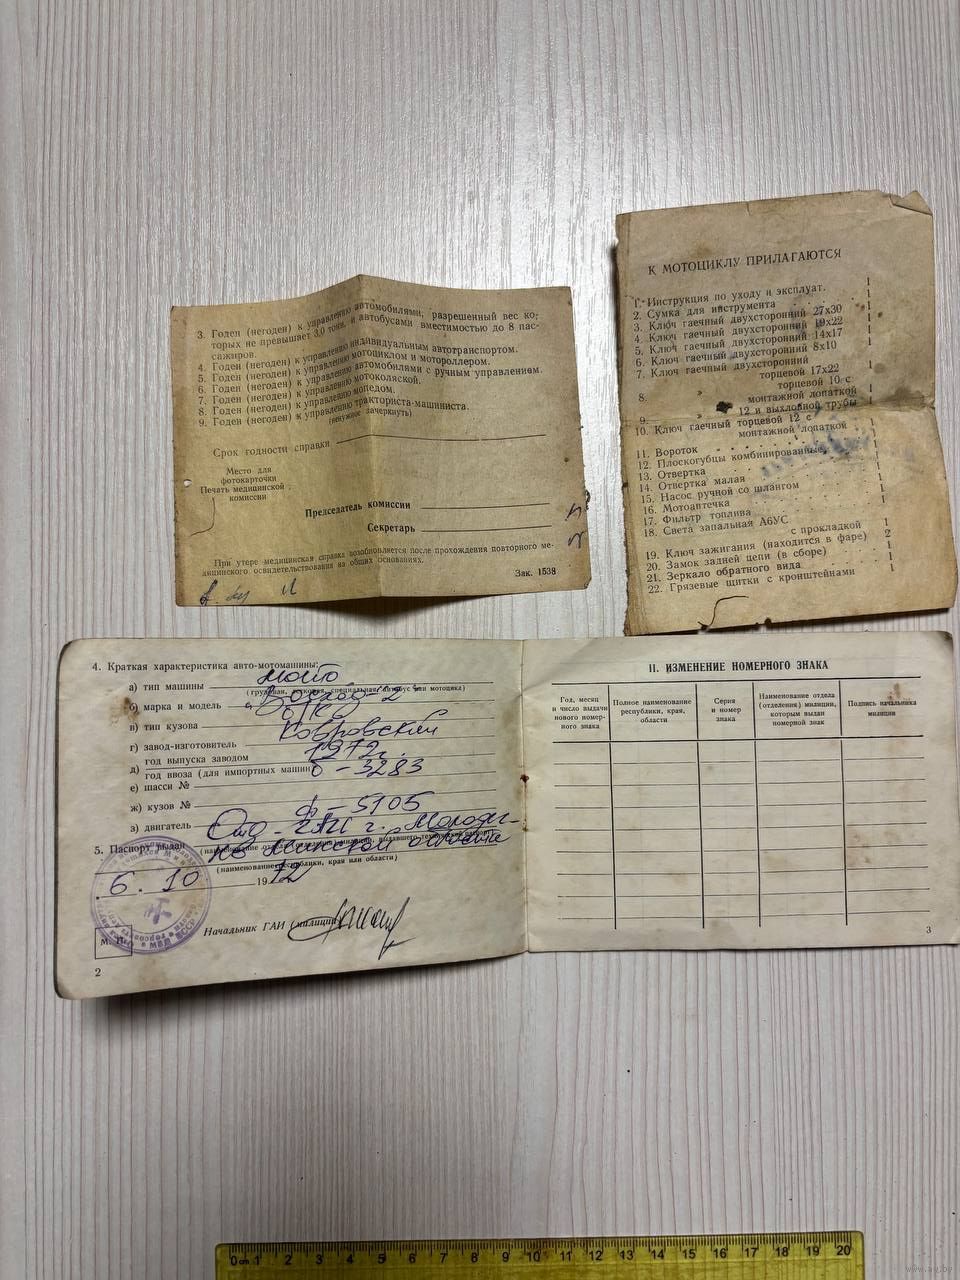 3. Годен (негоден) к управлению автомобилями, разрешенный вес ко;
торых не превышает 3,0 тонн, и автобусами вместимостью до 8 пас-
сажиров.
4. Годен (негоден) к управлению индивидуальным автотранспортом.
5. Годен (негоден) к управлению мотоциклом и мотороллером.
6. Годен (негоден) к управлению автомобилями с ручным управлением.
7. Годен (негоден) к управлению мотоколяской.
8. Годен (негоден) к управлению мопедом.
9. Годен (негоден) к управлению тракториста-машиниста.
(ненужное зачеркнуть)
Срок годности справки
Место для
фотокарточки
Печать медицинской
комиссии
Председатель комиссии
Секретарь
При утере медицинская справка возобновляется после прохождения повторного ме-
дицинского освидетельствования на общих основаниях.
Зак. 1538
К МОТОЦИКЛУ ПРИЛАГАЮТСЯ
1. Инструкция по уходу и эксплуат. 1
2. Сумка для инструмента 1
3. Ключ гаечный двухсторонний 27х30 1
4. Ключ гаечный двухсторонний 19х22 1
5. Ключ гаечный двухсторонний 14х17 1
6. Ключ гаечный двухсторонний 8х10 1
7. Ключ гаечный двухсторонний
торцевой 17х22 1
8. » торцевой 10 с
монтажной лопаткой 1
9. » 12 и выхлопной трубы 1
10. Ключ гаечный торцевой 12 с
монтажной лопаткой 1
11. Вороток 1
12. Плоскогубцы комбинированные 1
13. Отвертка 1
14. Отвертка малая 1
15. Насос ручной со шлангом 1
16. Мотоаптечка 1
17. Фильтр топлива 1
18. Свеча запальная А6УС
с прокладкой 1
19. Ключ зажигания (находится в фаре) 2
20. Замок задней цепи (в сборе) 1
21. Зеркало обратного вида 1
22. Грязевые щитки с кронштейнами 1
4. Краткая характеристика авто-мотомашины:
а) тип машины мото
(грузовая, легковая, специальная, автобус или мотоцикл)
б) марка и модель „Восход-2"
в) тип кузова
г) завод-изготовитель Ковровский
д) год выпуска заводом 1972г.
год ввоза (для импортных машин)
е) шасси № 6-3283
ж) кузов №
з) двигатель ф-5105
5. Паспорт выдан Отд. ГАИ г. Молодеч-
(наименование отдела (отделения) милиции, выдавшего технический паспорт)
но Минской области
(наименование республики, края или области)
6. 10 1972
Начальник ГАИ (милиции)
М. П.
2
II. ИЗМЕНЕНИЕ НОМЕРНОГО ЗНАКА
Год, месяц
и число выдачи
нового номер-
ного знака
Полное наименование
республики, края,
области
Серия
и номер
знака
Наименование отдела
(отделения) милиции,
которым выдан
номерной знак
Подпись начальника
милиции
3
0cm 1 2 3 4 5 6 7 8 9 10 11 12 13 14 15 16 17 18 19 20
www.ay.by